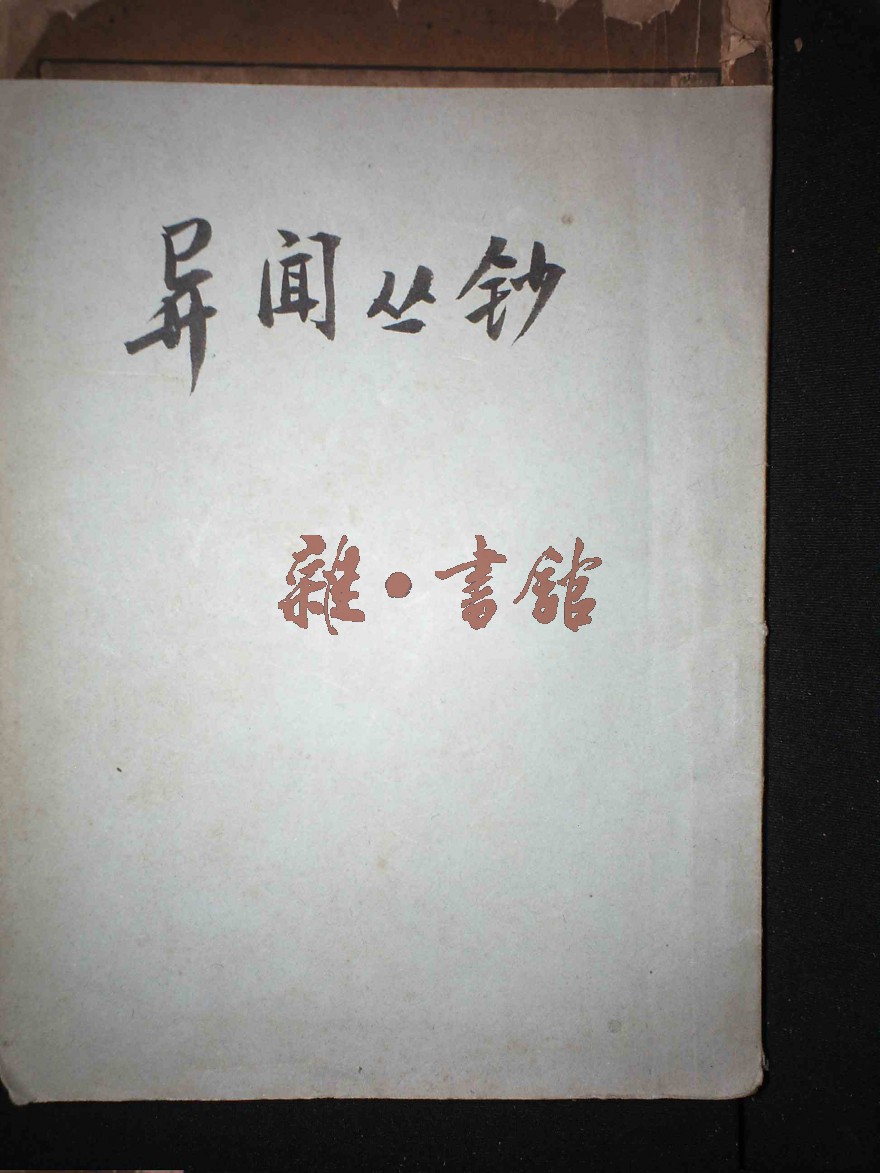 异闻丛钞
雜·書館